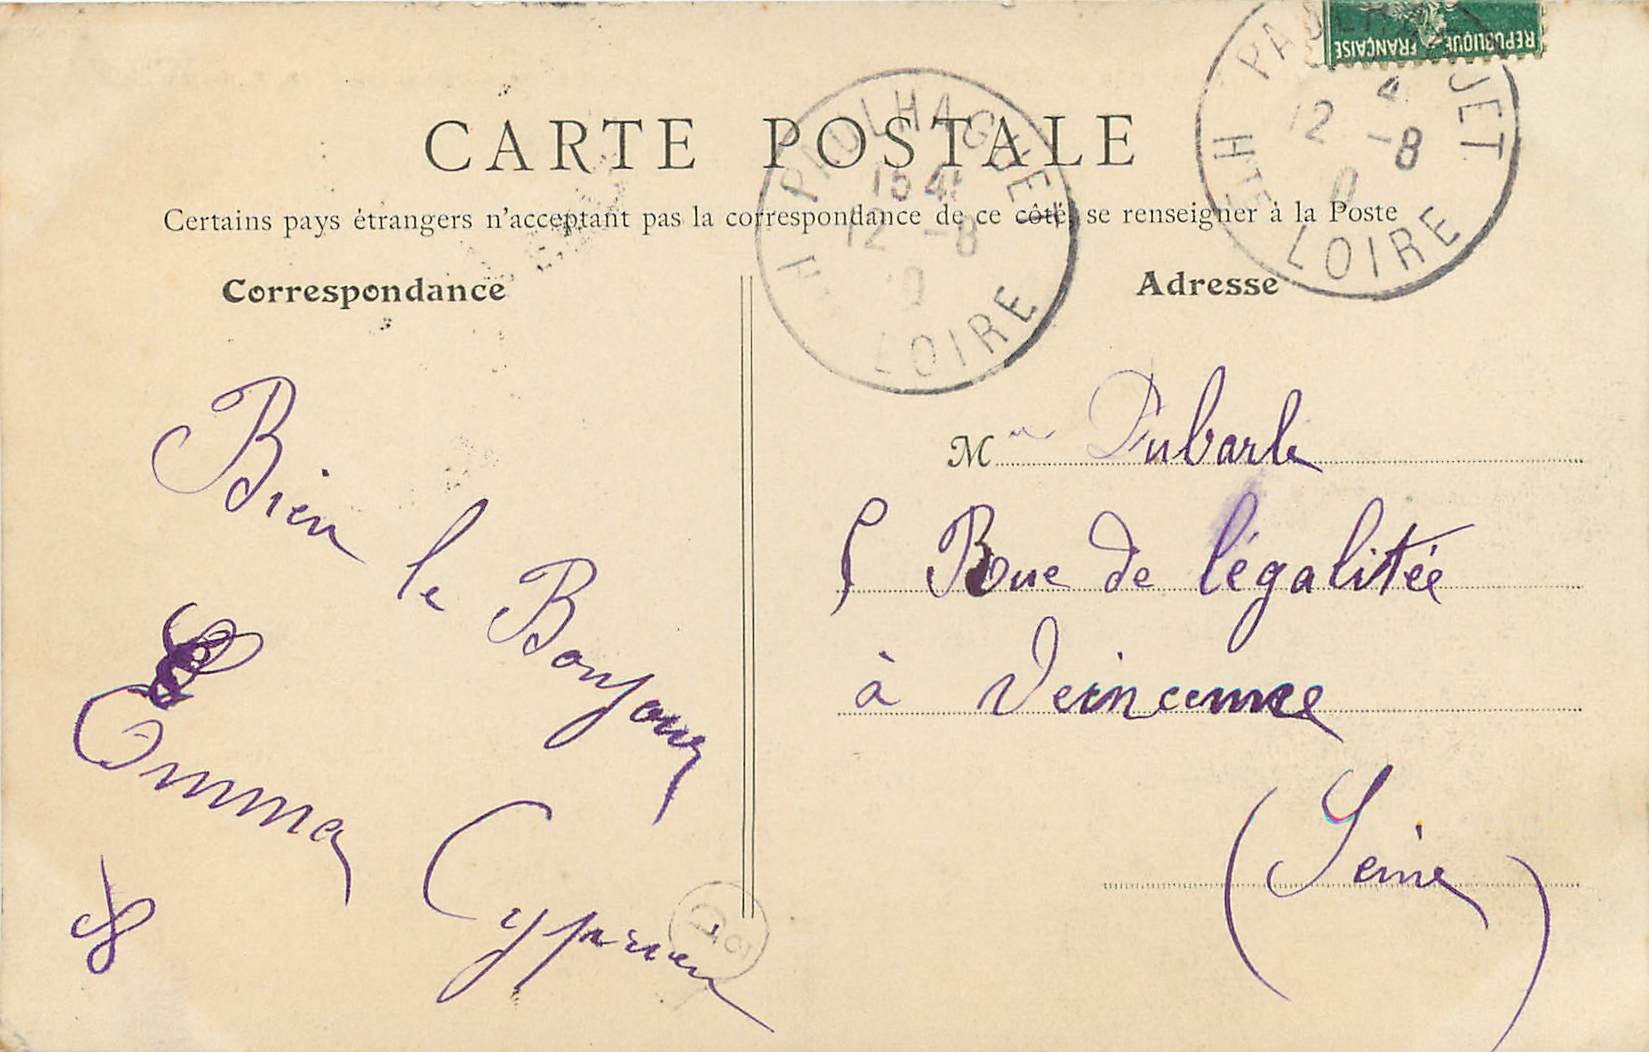 REPUBLIQUE FRANÇAISE
CARTE POSTALE
Certains pays étrangers n'acceptant pas la correspondance de ce côté, se renseigner à la Poste
PAULHAGUET
15 4
12 -8
HTE LOIRE
PAULHAGUET
4
12 -8
HTE LOIRE
Correspondance
Bien le Bonjour
Emma
Cyprien
Adresse
M Dubarle
5 Rue de l'égalitée
à Veincenne
(Seine)